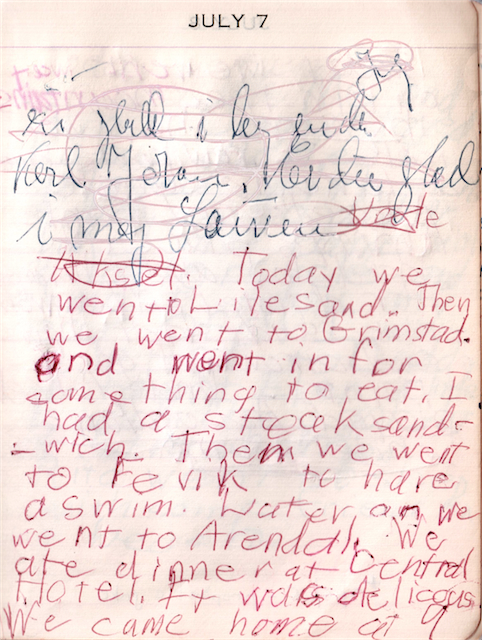 JULY 7
Jeg
er glad i deg enda
Karl Johan. Er du glad
i meg
Today we
went to Lilesand. Then
we went to Grimstad.
and went in for
something to eat. I
had a stoak sand-
-wich. Them we went
to Fevik to have
a swim. Later on we
went to Arendal. We
ate dinner at Central
Hotel. It was delicous
We came home at 9